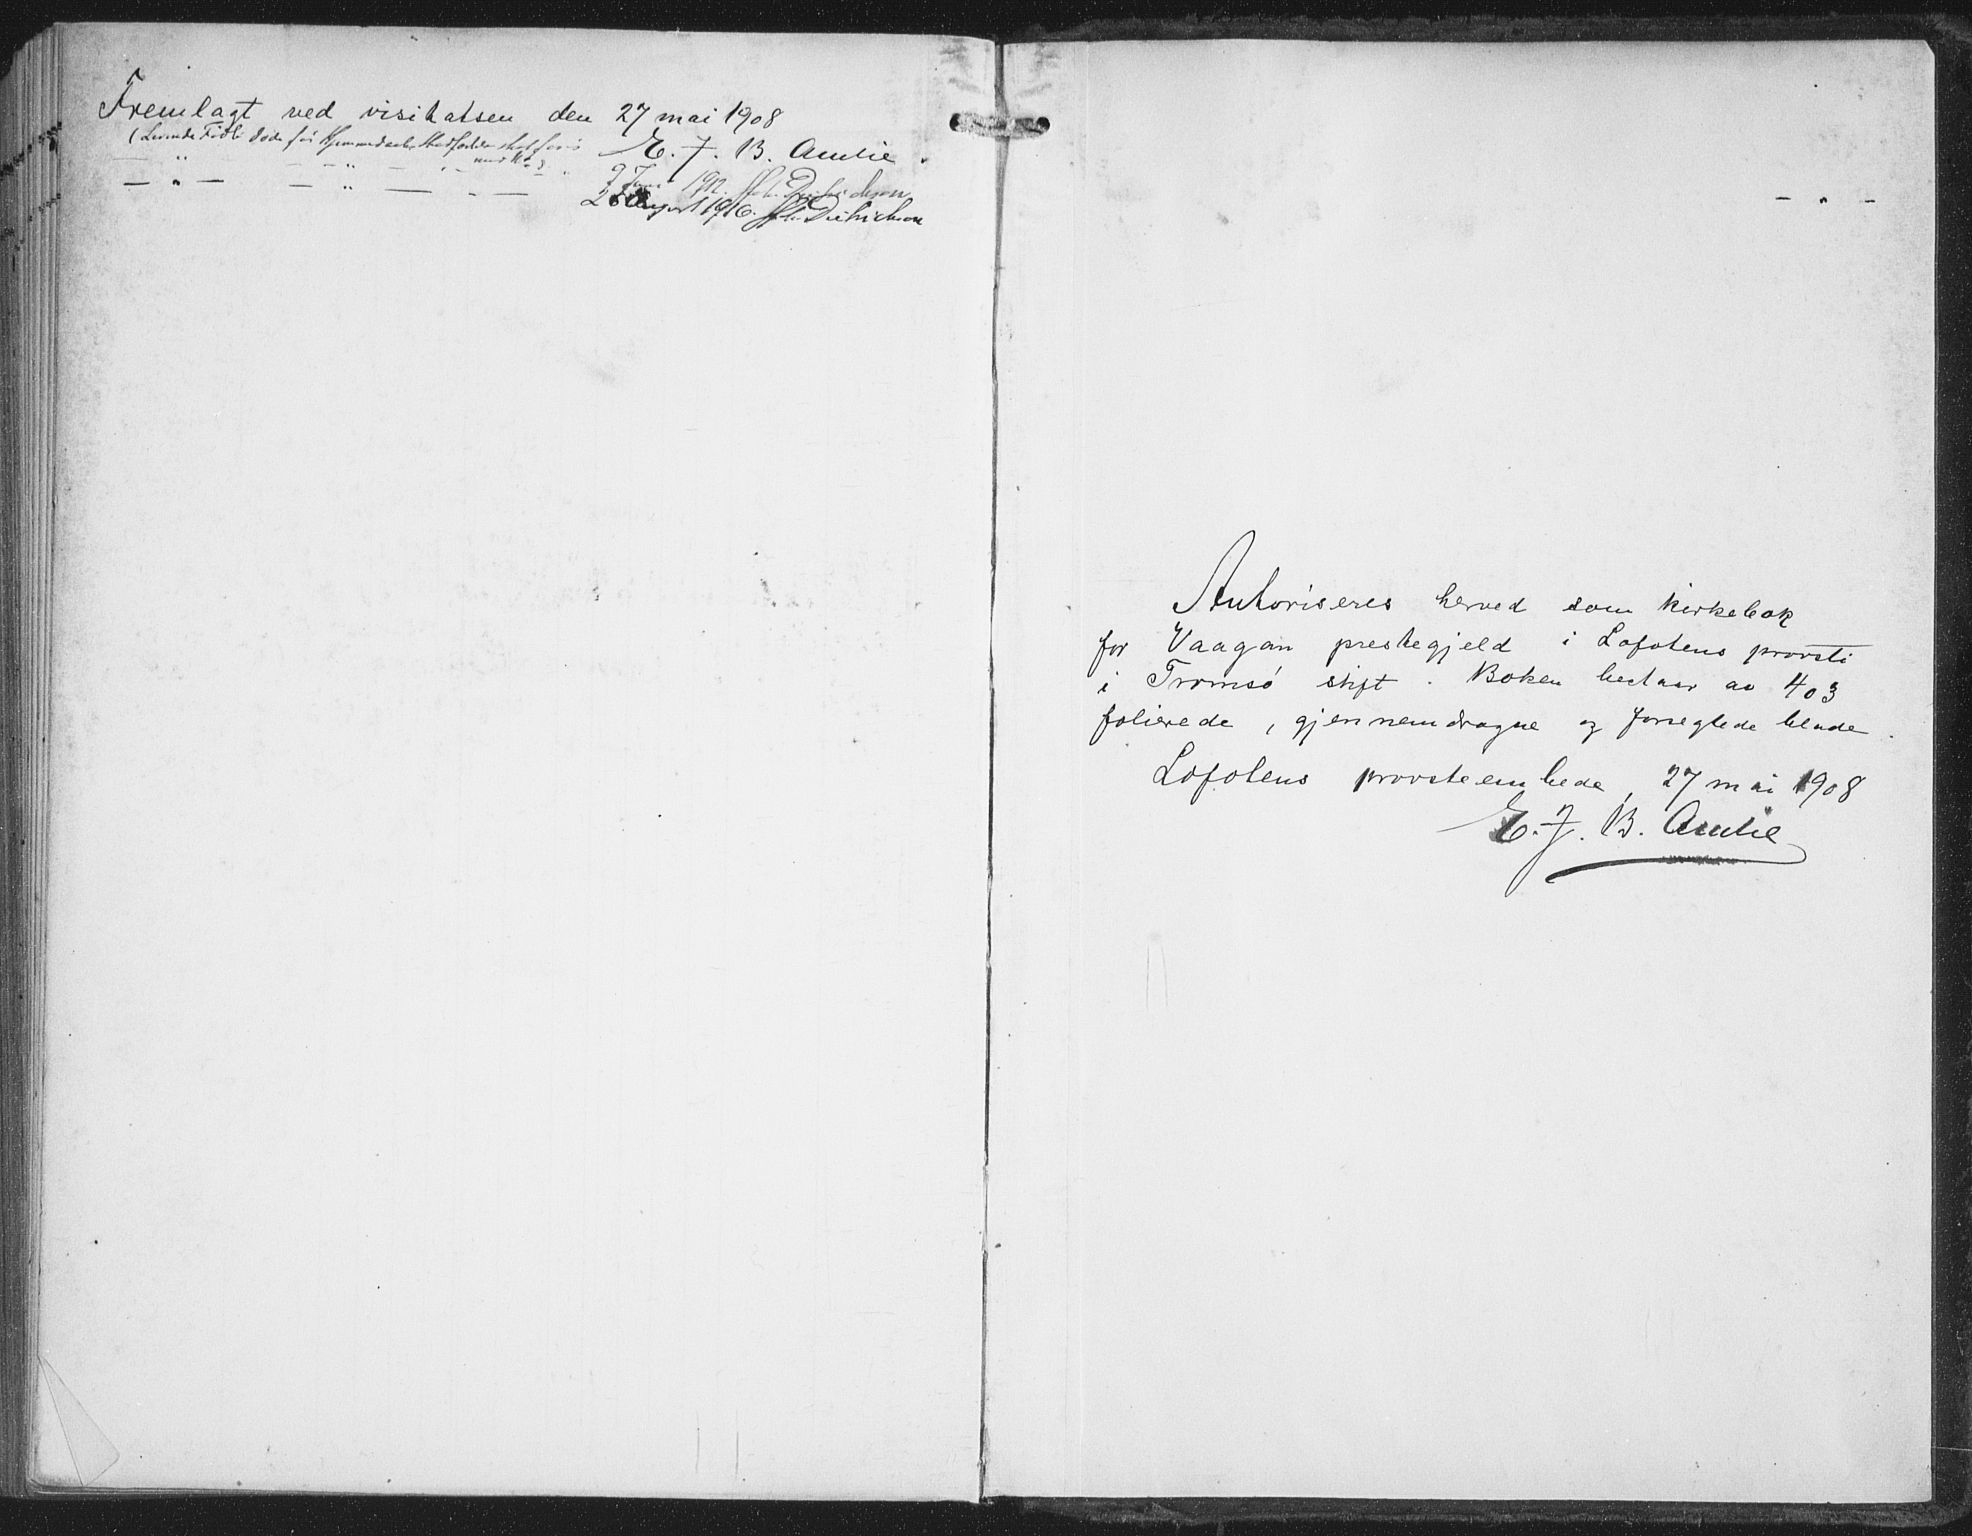 Fremlagt ved visitatsen den 27 mai 1908
E. F. B. Amlie.
— " — — " — — - —
Juni 1912. Joh. Dietrichson
August 1916. Joh. Dietrichson
— " —
Autoriseres herved som kirkebok
for Vaagan prestegjeld i Lofotens provsti
i Tromsø stift. Boken bestaar av 403
folierede, gjennemdragne og forseglede blade.
Lofotens provsteembede, 27 mai 1908
E. F. B. Amlie